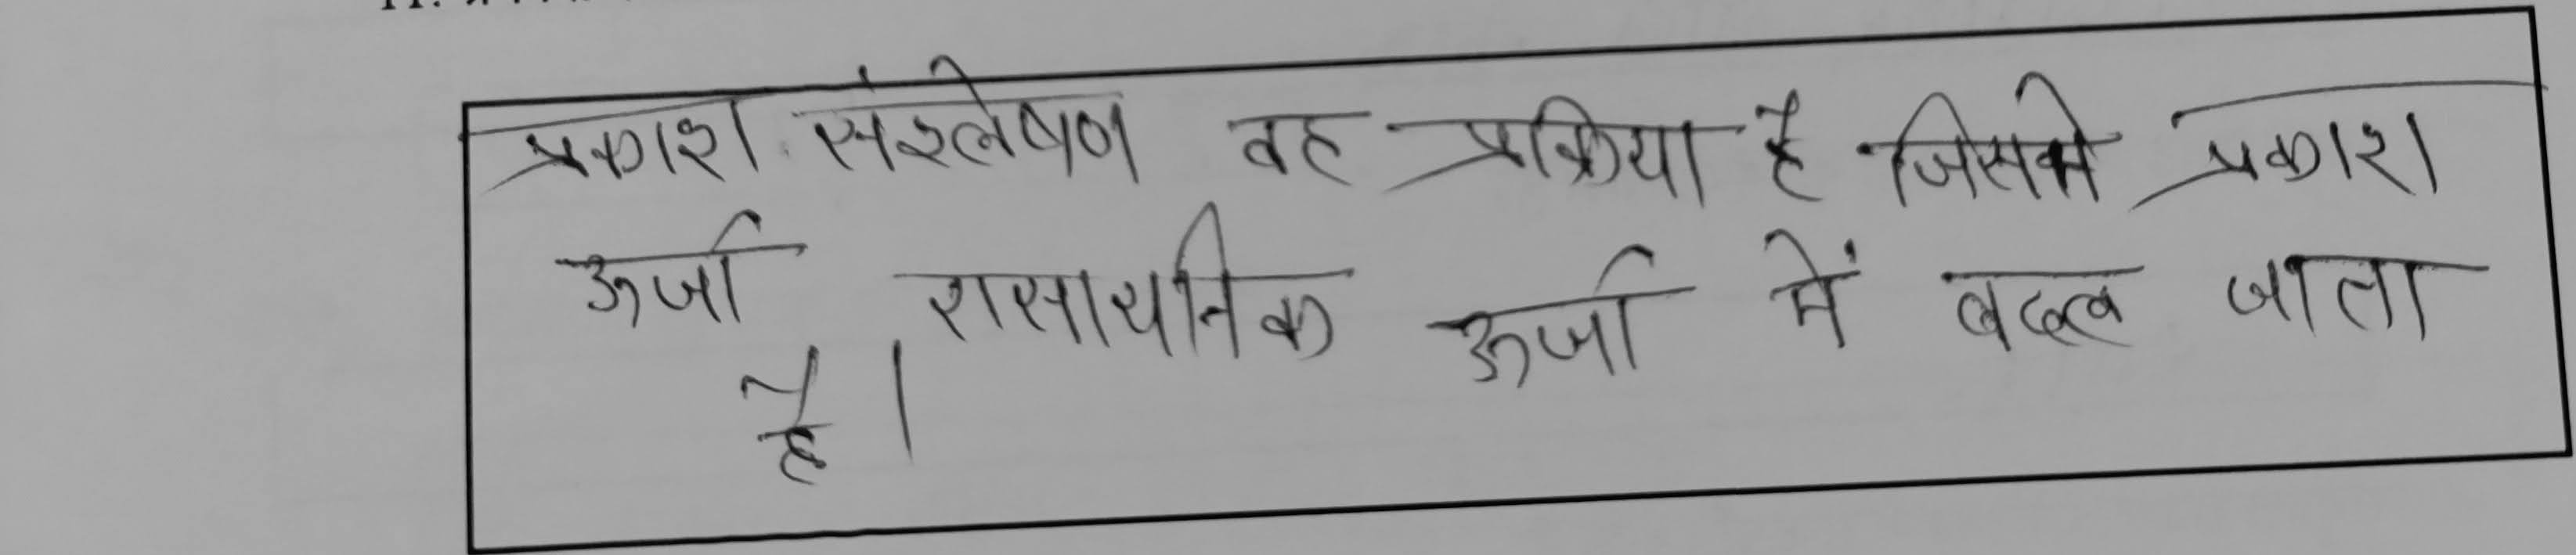 प्रकाश संश्लेषण वह प्रक्रिया है जिसमे प्रकाश
ऊर्जा रासायनिक ऊर्जा में बदल जाता
है।